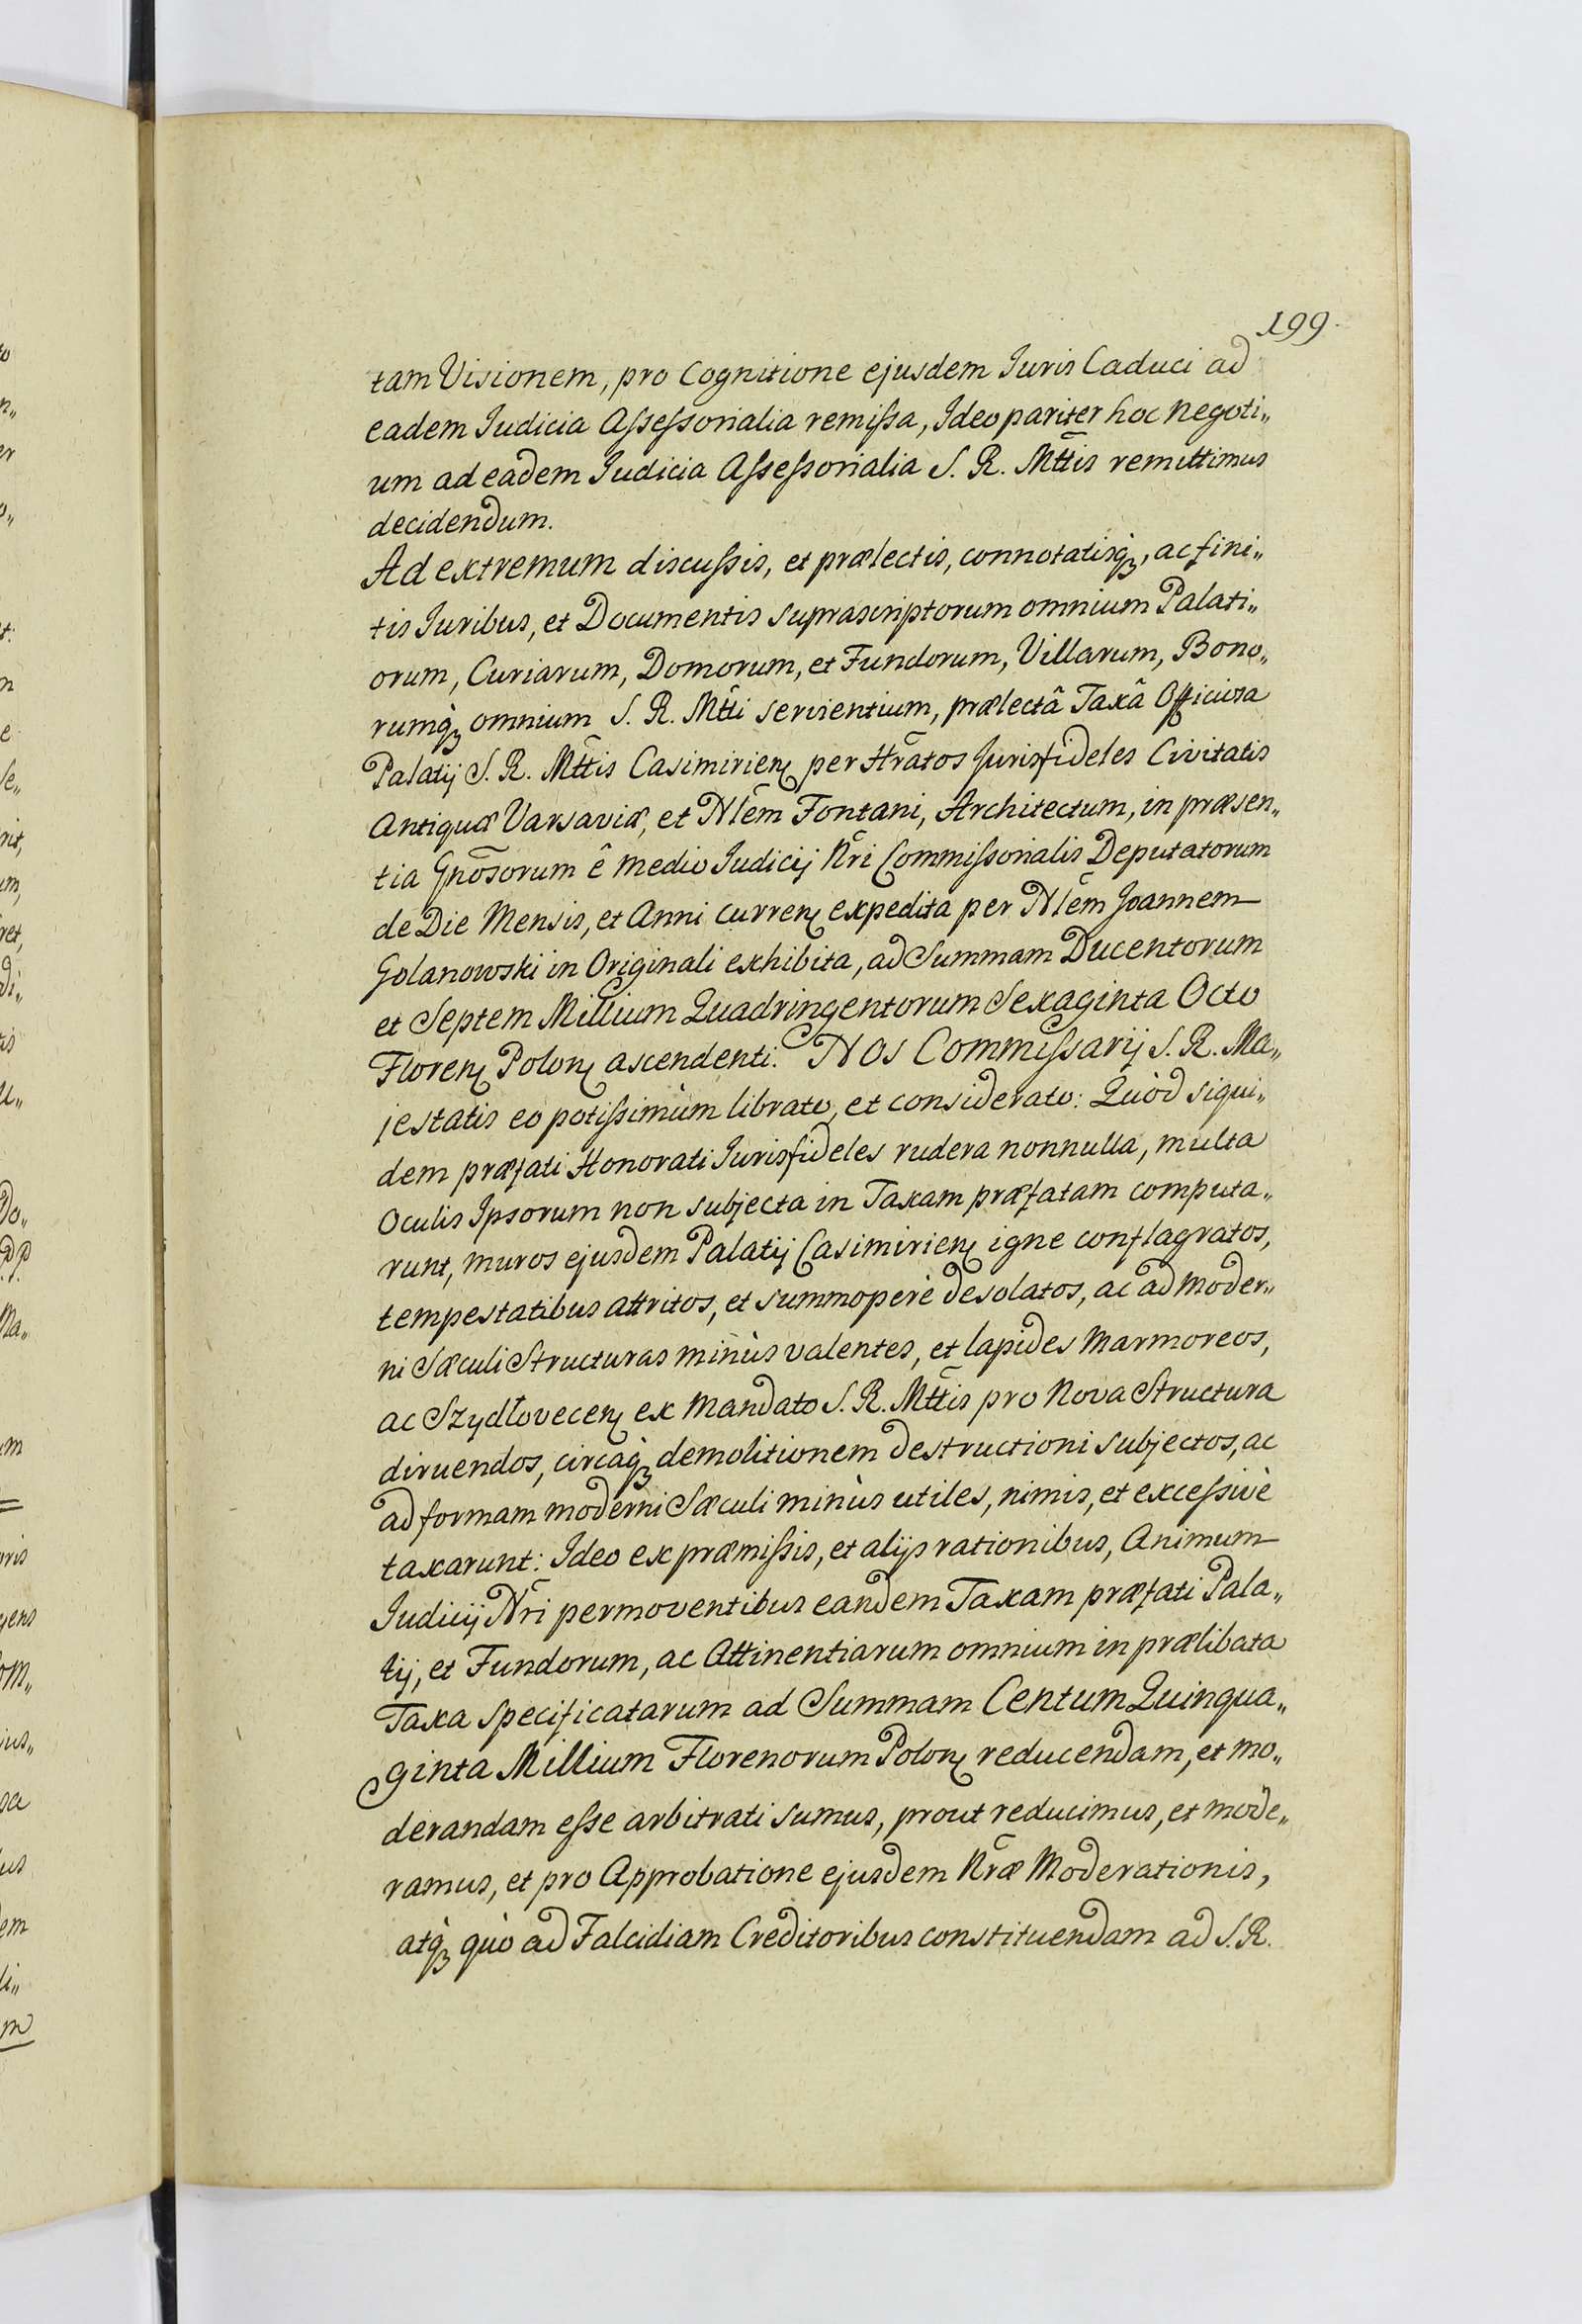 199.
tam Visionem, pro Cognitione ejusdem Iuris Caduci ad
eadem Iudicia Aſseſsorialia remiſsa, Ideo pariter hoc negoti„
um ad eadem Iudicia Aſseſsorialia S. R. Mttis remittimus
decidendum.
Ad extremum discuſsis, et prælectis, connotatisq́ꝫ, ac fini„
tis Iuribus, et Documentis suprascriptorum omnium Palati„
orum, Curiarum, Domorum, et Fundorum, Villarum, Bono„
rumq́ꝫ omnium S. R. Mtti servientium, prælectâ Taxâ Officiosa
Palatij S. R. Mttis Casimirien̨ per Hratos Jurisfideles Civitatis
Antiquæ Varsaviæ, et Nlēm Fontani, Architectum, in præsen„
tia Gnōsorum ê medio Iudicij Nr̄i Commiſsorialis Deputatorum
de Die Mensis, et Anni curren̨ expedita per Nlēm Joannem
Golanowski in Originali exhibita, ad Summam Ducentorum
et Septem Millium Quadringentorum Sexaginta Octo
Floren̨ Polon̨ ascendenti. Nos Commiſsarij S. R. Ma„
jestatis eo potiſsimùm librato, et considerato: Quòd siqui„
dem præfati Honorati Iurisfideles rudera nonnulla, multa
Oculis Ipsorum non subjecta in Taxam præfatam computa„
runt, muros ejusdem Palatij Casimirien̨ igne conflagratos,
tempestatibus attritos, et summoperè desolatos, ac ad moder„
ni Sæculi Structuras minùs valentes, et lapides Marmoreos,
ac Szydłovecen̨ ex Mandato S. R. Mttis pro Nova Structura
diruendos, circaq́ꝫ demolitionem destructioni subjectos, ac
ad formam moderni Sæculi minùs utiles, nimis, et exceſsivè
taxarunt: Ideo ex præmiſsis, et alijs rationibus, Animum
Iudicij Nr̄i permoventibus eandem Taxam præfati Pala„
tij, et Fundorum, ac Attinentiarum omnium in prælibata
Taxa specificatarum ad Summam Centum Quinqua„
ginta Millium Florenorum Polon̨ reducendam, et mo„
derandam eſse arbitrati sumus, prout reducimus, et mode„
ramus, et pro Approbatione ejusdem Nr̄æ Moderationis,
atq́ꝫ quò ad Falcidiam Creditoribus constituendam ad S. R.